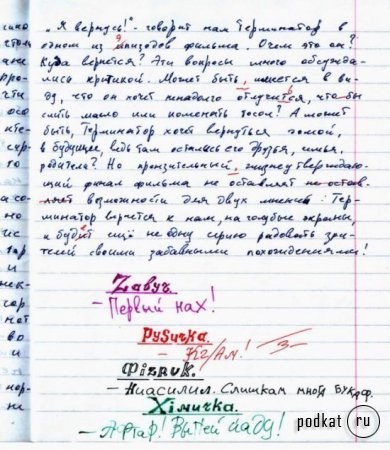 „Я вернусь!" - говорит нам Терминатор в
одном из эпизодов фильма. О чем это он?
Куда вернется? Эти вопросы много обсужда-
лись критикой. Может быть, имеется в ви-
ду, что он хочет ненадолго отлучится, что бы
слить мало или поменять тосол? А может
быть, Терминатор хочет вернуться домой,
в будущее, ведь там остались его друзья, семья,
родители? Но пронзительный, жизнеутверждаю-
щий финал фильма не оставляет
возможности для двух мнений: Тер-
минатор вернется к нам, на голубые экраны,
и будет ещё не одну серию радовать зри-
телей своими забавными похождениями!
Завуч.
- Первый нах!
РуSичка.
- КГ/Ам! 3-
Фiзвuк.
- Ниасилил. Слишкам многа букаф.
Хiмичка.
- Афтар! Выпей йаду!
podkat ru